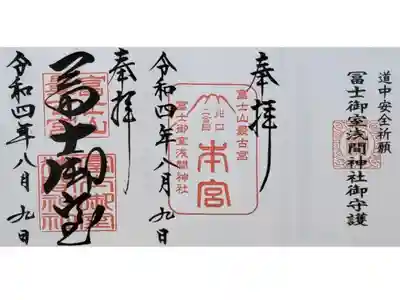 道中安全祈願
冨士御室浅間神社御守護
奉拝
富士山最古宮
川口
二合目
本宮
冨士御室浅間神社
令和四年八月九日
奉拝
冨士御室
令和四年八月九日